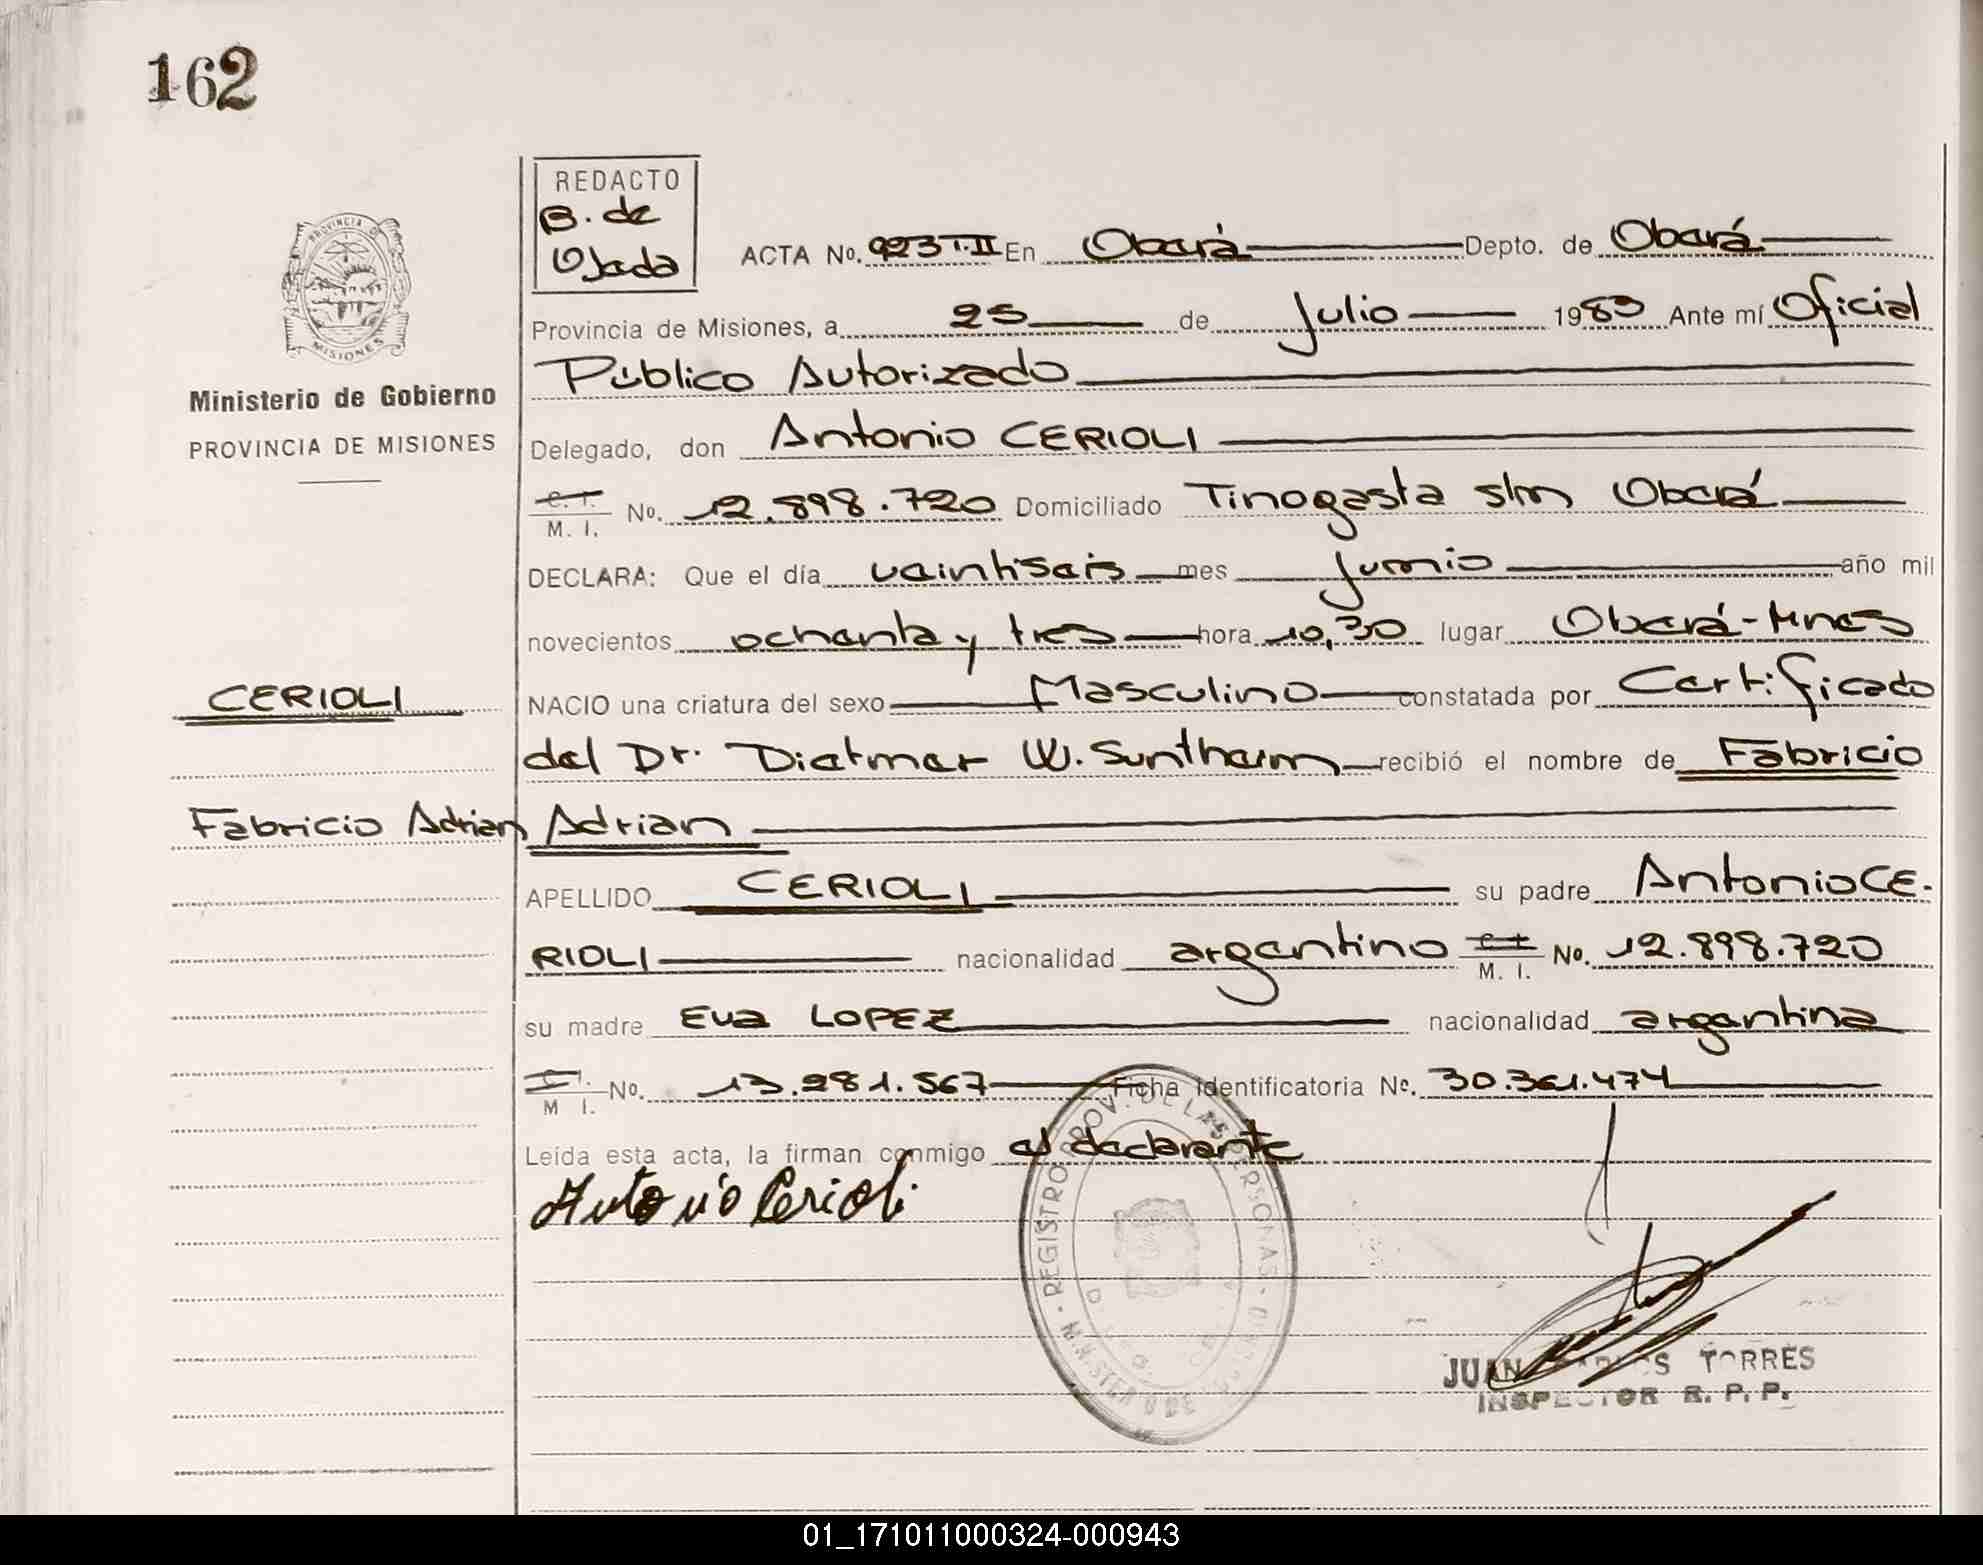 162
REDACTO
B. de
Ojeda
ACTA No. 923 T.II En Oberá Depto. de Oberá
Provincia de Misiones, a 25 de Julio 1983 Ante mí Oficial
Público Autorizado
Delegado, don Antonio CERIOLI
C. I. M. I. No. 12.898.720 Domiciliado Tinogasta s/n Oberá
DECLARA: Que el día veintiseis mes junio año mil
novecientos ochenta y tres hora 10,30 lugar Oberá-Mnes
NACIO una criatura del sexo Masculino constatada por Certificado
del Dr. Dietmar W. Sunthaim recibió el nombre de Fabricio
Adrian
APELLIDO CERIOLI su padre Antonio CE-
RIOLI nacionalidad argentino C. I. M. I. No. 12.898.720
su madre Eva LOPEZ nacionalidad argentina
C. I. M I. No. 13.281.567 Ficha Identificatoria No. 30.361.474
Leída esta acta, la firman conmigo el declarante
Antonio Cerioli
PROVINCIA D
MISIONES
Ministerio de Gobierno
PROVINCIA DE MISIONES
CERIOLI
Fabricio Adrian
REGISTRO PROV. DE LAS PERSONAS
JUAN CARLOS TORRES
INSPECTOR R. P. P.
01_171011000324-000943